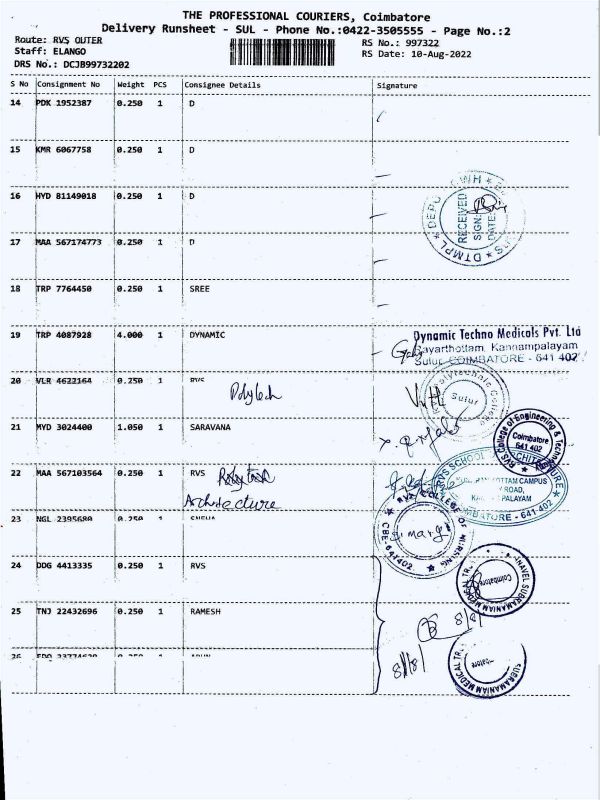 THE PROFESSIONAL COURIERS, Coimbatore
Delivery Runsheet - SUL - Phone No.:0422-3505555 - Page No.:2
Route: RVS OUTER
RS No.: 997322
Staff: ELANGO
RS Date: 10-Aug-2022
DRS No.: DCJB99732202
S No Consignment No Weight PCS Consignee Details Signature
14 PDK 1952387 0.250 1 D
15 KMR 6067758 0.250 1 D
16 HYD 81149018 0.250 1 D
DEPO
RECEIVED
SIGN:
DATE:
DTMPL
17 MAA 567174773 0.250 1 D
18 TRP 7764450 0.250 1 SREE
19 TRP 4087928 4.000 1 DYNAMIC
Dynamic Techno Medicals Pvt. Ltd
Kannampalayam
Sulur, COIMBATORE - 641 402
20 VLR 4622164 0.250 1 RVS
Polytech
Polytechnic College
Sulur
21 MYD 3024400 1.050 1 SARAVANA
RVS College of Engineering & Techn
Coimbatore
641 402
22 MAA 567103564 0.250 1 RVS
Architecture
RVS SCHOOL ARCHITECTURE
CAMPUS
ROAD,
PALAYAM
COIMBATORE - 641 402
23 NGL 2395680 0.250 1
RVS COLLEGE OF NURSING
CBE-641402
24 DDG 4413335 0.250 1 RVS
Coimbatore
SUBRAMANIAM MEDICAL TR
25 TNJ 22432696 0.250 1 RAMESH
8/8/
26 1
8/8/
SUBRAMANIAM MEDICAL TR